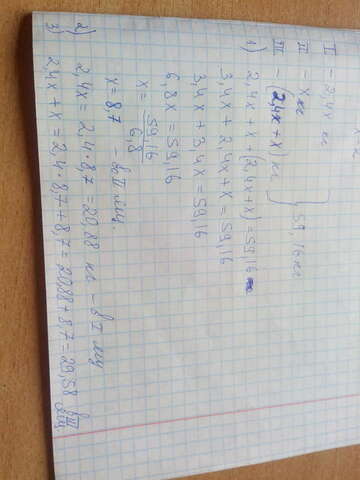 I - 2,4x кг
II - x кг
III - (2,4x + x) кг } 59,16 кг
1) 2,4x + x + (2,4x+x) = 59,16
3,4x + 2,4x + x = 59,16
3,4x + 3,4x = 59,16
6,8x = 59,16
x = 59,16 / 6,8
x = 8,7 - во II
2) 2,4x = 2,4·8,7 = 20,88 кг - в I
3) 2,4x + x = 2,4·8,7+8,7 = 20,88+8,7 = 29,58 в III